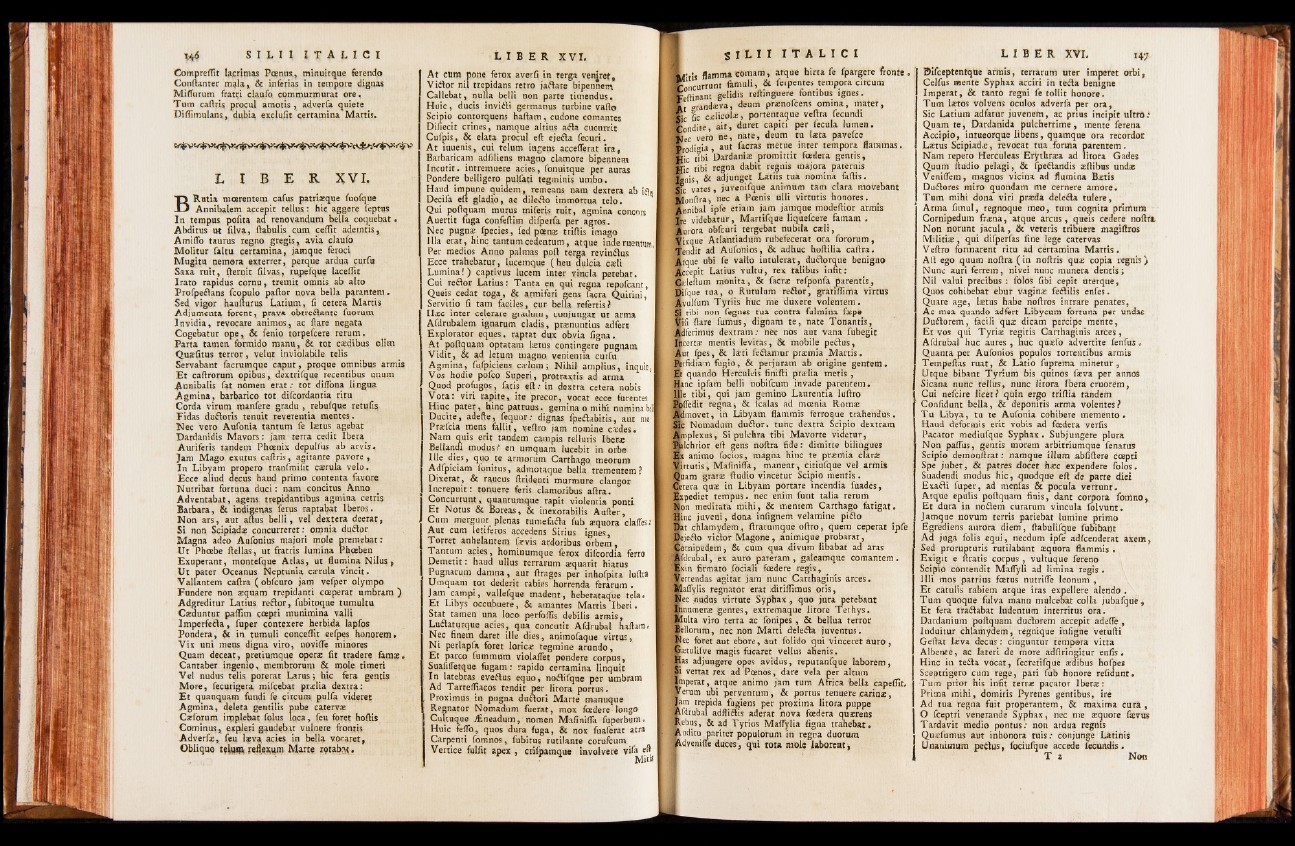 146 SILII ITALICI
Compreſſit lacrimas Pœnus, minuitque ferendo
Conſtanter mala, & inferias in tempore dignas
Miſſurum fratri clauſo commurmurat ore.
Tum caſtris procul amotis, adverſa quiete
Diſſimulans, dubia excluſit certamina Martis.
LIBER XVI.
BRutia mœrentem caſus patriæque ſuoſque
Annibalem accepit tellus: hic aggere ſeptus
In tempus poſita ad renovandum bella coquebat.
Abditus ut ſilva, ſtabulis cum ceſſit ademtis,
Amiſſo taurus regno gregis, avia clauſo
Molitur ſaltu certamina, jamque feroci
Mugitu nemora exterrer, perque ardua curſu
Saxa ruit, ſternit ſilvas, rupeſque laceſſit
Irato rapidus cornu, tremit omnis ab alto
Proſpectans ſcopulo paſtor nova bella parantem.
Sed vigor hauſturus Latium, ſi cetera Martis
Adjumenta forent, prava obtrectante ſuorum
Invidia, revocare animos, ac ſtare negata
Cogebatur ope, & ſenio torpeſcere rerum.
Parta tamen formido manu, & tot cædibus olim
Quæſitus terror, velut inviolabile telis
Servabant ſacrumque caput, proque omnibus armis
Et caſtrorum opibus, dextriſque recentibus unum
Annibalis ſat nomen erat: tot diſſona lingua
Agmina, barbarico tot diſcordantia ritu
Corda virum manſere gradu, rebuſque retuſis
Fidas ductoris tenuit reverentia mentes.
Nec vero Auſonia tantum ſe lætus agebat
Dardanidis Mavors: jam terra cedit Ibera
Auriferis tandem Phœnix depulſus ab arvis.
Jam Mago exutus caſtris, agitante pavore,
In Libyam propero tranſmiſit cærula velo.
Ecce aliud decus haud primo contenta favore
Nutribat fortuna duci: nam concitus Anno
Adventabat, agens trepidantibus agmina cetris
Barbara, & indigenas ſerus raptabat Iberos.
Non ars, aut aſtus belli, vel dextera deerat,
Si non Scipiadæ concurreret: omnia ductor
Magna adeo Auſonius majori mole premebat:
Ut Phœbe ſtellas, ut fratris lumina Phœben
Exuperant, monteſque Atlas, ut flumina Nilus,
Ut pater Oceanus Neptunia cærula vincit.
Vallantem caſtra (obſcuro jam veſper olympo
Fundere non æquam trepidanti cœperat umbram)
Adgreditur Latius rector, ſubitoque tumultu
Cæduntur paſſim cœpti munimina valli
Imperfecta, ſuper contexere herbida lapſos
Pondera, & in tumuli conceſſit ceſpes honorem.
Vix uni mens digna viro, noviſſe minores
Quam deceat, pretiumque operæ ſit tradere famæ.
Cantaber ingenio, membrorum & mole timeri
Vel nudus telis poterat Larus; hic fera gentis
More, ſecurigera miſcebat prælia dextra:
Et quanquam fundi ſe circum pulſa videret
Agmina, deleta gentilis pube catervæ
Cæſorum implebat ſolus loca, ſeu foret hoſtis
Cominus, expleri gaudebat vulnere frontis
Adverſæ, ſeu læva acies in bella vocaret,
Obliquo telum reflexum Marte rotabat.
LIBER XVI.
At cum pone ferox averſi in terga veniret,
Victor nil trepidans retro jactare bipennem
Callebat, nulla belli non parte timendus.
Huic, ducis invicti germanus turbine vaſto
Scipio contorquens haſtam, cudone comantes
Disſecit crines, namque altius acta cucurrit
Cuſpis, & elata procul eſt ejecta ſecuri.
At juuenis, cui telum ingens acceſſerat ira,
Barbaricam adſiliens magno clamore bipennem
Incutit. intremuere acies, ſonuitque per auras
Pondere belligero pulſati tegminis umbo.
Haud impune quidem, remeans nam dextera ab ictu
Deciſa eſt gladio, ac dilecto immortua telo.
Qui poſtquam murus miſeris ruit, agmina concors
Auertit fuga confeſtim diſperſa per agros.
Nec pugnæ ſpecies, ſed pœnæ triſtis imago
Illa erat, hinc tantum cedentum, atque inde ruentum.
Per medios Anno palmas poſt terga revinctus
Ecce trahebatur, lucemque (heu dulcia cæli
Lumina!) captivus lucem inter vincla petebat.
Cui rector Latius: Tanta en qui regna repoſcant,
Queis cedat toga, & armiferi gens ſacra Quirini,
Servitio ſi tam faciles, cur bella refertis?
Hæc inter celerare gradum, conjungat ut arma
Aſdrubalem ignarum cladis, prænuntius adfert
Explorator eques. raptat dux obvia ſigna.
At poſtquam optatam lætus contingere pugnam
Vidit, & ad letum magno venientia curſu
Agmina, ſuſpiciens cælum; Nihil amplius, inquit,
Vos hodie poſco Superi, protractis ad arma
Quod profugos, ſatis eſt: in dextra cetera nobis
Vota: viri rapite, ite precor, vocat ecce furentes
Hinc pater, hinc patruus. gemina o mihi numina belli
Ducite, adeſte, ſequor: dignas ſpectabitis, aut me
Præſcia mens fallit, veſtro jam nomine cædes.
Nam quis erit tandem campis telluris Iberæ
Bellandi modus? en umquam lucebit in orbe
Ille dies, quo te armorum Carthago meorum
Adſpiciam ſonitus, admotaque bella trementem?
Dixerat, & raucus ſtridenti murmure clangor
Increpuit: tonuere feris clamoribus aſtra.
Concurrunt, quantumque rapit violentia ponti
Et Notus & Boreas, & inexorabilis Auſter,
Cum mergunt plenas tumefacta ſub æquora claſſes:
Aut cum letiferos accedens Sirius ignes,
Torret anhelantem ſævis ardoribus orbem,
Tantum acies, hominumque ferox diſcordia ferro
Demetit: haud ullus terrarum æquarit hiatus
Pugnarum damna, aut ſtrages per inhoſpita luſtra
Umquam tot dederit rabies horrenda ferarum.
Jam campi, valleſque madent, hebetataque tela.
Et Libys occubuere, & amantes Martis Iberi.
Stat tamen una loco perfoſſis debilis armis,
Luctaturque acies, qua concutit Aſdrubal haſtam.
Nec finem daret ille dies, animoſaque virtus,
Ni perlapſa foret loricæ tegmine arundo,
Et parco ſummum violaſſet pondere corpus,
Suaſiſſetque fugam: rapido certamina linquit
In latebras evectus equo, noctiſque per umbram
Ad Tarteſſiacos tendit per litora portus.
Proximus in pugna ductori Marte manuque
Regnator Nomadum fuerat, mox fœdere longo
Cultuque Æneadum, nomen Maſiniſſa ſuperbum.
Huic feſſo, quos dura fuga, & nox ſuaſerat atra
Carpenti ſomnos, ſubitus rutilante coruſcum
Vertice fulſit apex, criſpamque involvere viſa eſt
Mitis
SILII ITALICI
Mitis flamma comam, atque hirta ſe ſpargere fronte.
Concurrunt famuli, & ſerpentes tempora circum
Feſtinant gelidis reſtinguere fontibus ignes.
At grandæva, deum prænoſcens omina, mater,
Sic ſic cælicolæ, portentaque veſtra ſecundi
Condite, ait, duret capiti per ſecula lumen.
Nec vero ne, nate, deum tu læta paveſce
Prodigia, aut ſacras metue inter tempora flammas.
Hic tibi Dardaniæ promittit fœdera gentis,
Hic tibi regna dabit regnis majora paternis
Ignis, & adjunget Latiis tua nomina faſtis.
Sic vates, juveniſque animum tam clara movebant
Monſtra, nec a Pœnis ulli virtutis honores.
Annibal ipſe etiam jam jamque modeſtior armis
Ire videbatur, Martiſque liqueſcere famam.
Aurora obſcuri tergebat nubila cæli,
Vixque Atlantiadum rubefecerat ora ſororum,
Tendit ad Auſonios, & adhuc hoſtilia caſtra.
Atque ubi ſe vallo intulerat, ductorque benigno
Accepit Latius vultu, rex talibus infit:
Cæleſtum monita, & ſacræ reſponſa parentis,
Diſque tua, o Rutulum rector, gratiſſima virtus
Avulſum Tyriis huc me duxere volentem.
Si tibi non ſegnes tua contra fulmina ſæpe
Viſi ſtare ſumus, dignam te, nate Tonantis,
Adferimus dextram: nec nos aut vana ſubegit
Incertæ mentis levitas, & mobile pectus,
Aut ſpes, & læti ſectamur præmia Martis.
Perfidiam fugio, & perjuram ab origine gentem.
Et quando Herculeis finiſti prælia metis,
Hanc ipſam belli nobiſcum invade parentem.
Ille tibi, qui jam gemino Laurentia luſtro
Poſſedit regna, & ſcalas ad mœnia Romæ
Admovet, in Libyam flammis ferroque trahendus.
Sic Nomadum ductor. tunc dextra Scipio dextram
Amplexus, Si pulchra tibi Mavorte videtur,
Pulchrior eſt gens noſtra fide: dimitte bilingues
Ex animo ſocios, magna hinc te præmia claræ
Virtutis, Maſiniſſa, manent, citiuſque vel armis
Quam gratæ ſtudio vincetur Scipio mentis.
Cetera quæ in Libyam portare incendia ſuades,
Expediet tempus. nec enim ſunt talia rerum
Non meditata mihi, & mentem Carthago fatigat.
Hinc juveni, dona inſignem velamine picto
Dat chlamydem, ſtratumque oſtro, quem ceperat ipſe
Dejecto victor Magone, animique probarat,
Cornipedem, & cum qua divum libabat ad aras
Aſdrubal, ex auro pateram, galeamque comantem.
Exin firmato ſociali fœdere regis,
Vertendas agitat jam nunc Carthaginis arces.
Maſſylis regnator erat ditiſſimus oris,
Nec nudus virtute Syphax, quo jura petebant
Innumeræ gentes, extremaque litore Tethys.
Multa viro terra ac ſonipes, & bellua terror
Bellorum, nec non Marti delecta juventus.
Nec foret aut ebore, aut ſolido qui vinceret auro,
Gætuliſve magis fucaret vellus ahenis.
Has adjungere opes avidus, reputanſque laborem,
Si vertat rex ad Pœnos, dare vela per altum
Imperat, atque animo jam tum Africa bella capeſſit.
Verum ubi perventum, & portus tenuere carinæ,
Jam trepida fugiens per proxima litora puppe
Aſdrubal adflictis aderat nova fœdera quærens
Rebus, & ad Tyrios Maſſylia ſigna trahebat.
Audito pariter populorum in regna duorum
Adveniſſe duces, qui tota mole laborent,
LIBER XVI. 147
Diſceptentque armis, terrarum uter imperet orbi,
Celſus mente Syphax acciri in tecta benigne
Imperat, & tanto regni ſe tollit honore.
Tum lætos volvens oculos adverſa per ora,
Sic Latium adfatur juvenem, ac prius incipit ultro:
Quam te, Dardanida pulcherrime, mente ſerena
Accipio, intueorque libens, quamque ora recordor
Lætus Scipiadæ, revocat tua forma parentem.
Nam repeto Herculeas Erythræa ad litora Gades
Quum ſtudio pelagi, & ſpectandis æſtibus undæ
Veniſſem, magnos vicina ad flumina Bætis
Ductores miro quondam me cernere amore.
Tum mihi dona viri præda delecta tulere,
Arma ſimul, regnoque meo, tum cognita primum
Cornipedum fræna, atque arcus, queis cedere noſtra
Non norunt jacula, & veteris tribuere magiſtros
Militiæ, qui diſperſas ſine lege catervas
Veſtro formarent ritu ad certamina Martis.
Aſt ego quum noſtra (in noſtris quæ copia regnis)
Nunc auri ferrem, nivei nunc munera dentis;
Nil valui precibus: ſolos ſibi cepit uterque,
Quos cohibebat ebur vaginæ ſectilis enſes.
Quare age, lætus habe noſtros intrare penates,
Ac mea quando adfert Libycum fortuna per undas
Ductorem, facili quæ dicam percipe mente,
Et vos qui Tyriæ regitis Carthaginis arces,
Aſdrubal huc aures, huc quæſo advertite ſenſus.
Quanta per Auſonios populos torrentibus armis
Tempeſtas ruat, & Latio ſuprema minetur,
Utque bibant Tyrium bis quinos ſæva per annos
Sicana nunc tellus, nunc litora Ibera cruorem,
Cui neſcire licet? quin ergo triſtia tandem
Conſidunt bella, & deponitis arma volentes?
Tu Libya, tu te Auſonia cohibere memento.
Haud deformis erit vobis ad fœdera verſis
Pacator mediuſque Syphax. Subjungere plura
Non paſſus, gentis morem arbitriumque ſenatus
Scipio demonſtrat: namque illum abſiſtere cœpti
Spe jubet, & patres docet hæc expendere ſolos.
Suadendi modus hic, quodque eſt de parte diei
Exacti ſuper, ad menſas & pocula vertunt.
Atque epulis poſtquam finis, dant corpora ſomno,
Et dura in noctem curarum vincula ſolvunt.
Jamque novum terris pariebat lumine primo
Egrediens aurora diem, ſtabuliſque ſubibant
Ad juga ſolis equi, necdum ipſe adſcenderat axem,
Sed prorupturis rutilabant æquora flammis.
Exigit e ſtratis corpus, vultuque ſereno
Scipio contendit Maſſyli ad limina regis.
Illi mos patrius fœtus nutriſſe leonum,
Et catulis rabiem atque iras expellere alendo.
Tum quoque fulva manu mulcebat colla jubaſque,
Et fera tractabat ludentum interritus ora.
Dardanium poſtquam ductorem accepit adeſſe,
Induitur chlamydem, regnique inſigne vetuſti
Geſtat læva decus: cinguntur tempora vitta
Albente, ac lateri de more adſtringitur enſis.
Hinc in tecta vocat, ſecretiſque ædibus hoſpes
Sceptrigero cum rege, pari ſub honore reſidunt.
Tum prior his infit terræ pacator Iberæ:
Prima mihi, domitis Pyrenes gentibus, ire
Ad tua regna fuit properantem, & maxima cura,
O ſceptri venerande Syphax, nec me æquore ſævus
Tardavit medio pontus: non ardua regnis
Quæſumus aut inhonora tuis: conjunge Latinis
Unanimum pectus, ſociuſque accede ſecundis.
T 2 Non